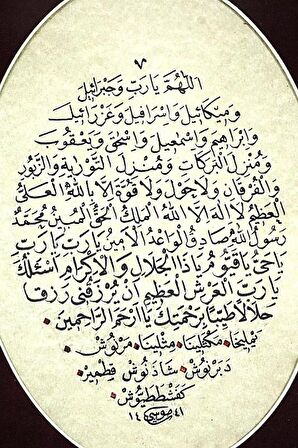 ٧
اَللّٰهُمَّ يَا رَبِّ وَجَبْرَائِيلَ
وَمِيكَائِيلَ وَاِسْرَافِيلَ وَعَزْرَائِيلَ
وَاِبْرَاهِيمَ وَاِسْمَعِيلَ وَاِسْحٰقَ وَيَعْقُوبَ
وَمُنْزِلَ الْبَرَكَاتِ وَمُنْزِلَ التَّوْرٰيةِ وَالزَّبُورِ
وَالْفُرْقَانِ وَلَا حَوْلَ وَلَا قُوَّةَ اِلَّا بِاللّٰهِ الْعَلِيِّ
الْعَظِيمِ لَا اِلٰهَ اِلَّا اللّٰهُ الْمَلِكُ الْحَقُّ الْمُبِينُ مُحَمَّدٌ
رَسُولُ اللّٰهِ صَادِقُ الْوَعْدِ الْاَمِينُ يَا رَبِّ يَا رَبِّ
يَا حَيُّ يَا قَيُّومُ يَا ذَا الْجَلَالِ وَالْاِكْرَامِ اَسْئَلُكَ
يَا رَبَّ الْعَرْشِ الْعَظِيمِ اَنْ يَرْزُقَنِي رِزْقًا
حَلَالًا طَيِّبًا بِرَحْمَتِكَ يَا اَرْحَمَ الرَّاحِمِينَ
يَمْلِيخَا مَكْثَلِينَا مِثْلِينَا مَرْنُوشْ
دَبَرْنُوشْ شَاذَنُوشْ قِطْمِيرْ
كَفَشْطَطَيُّوشْ
١٤٤١